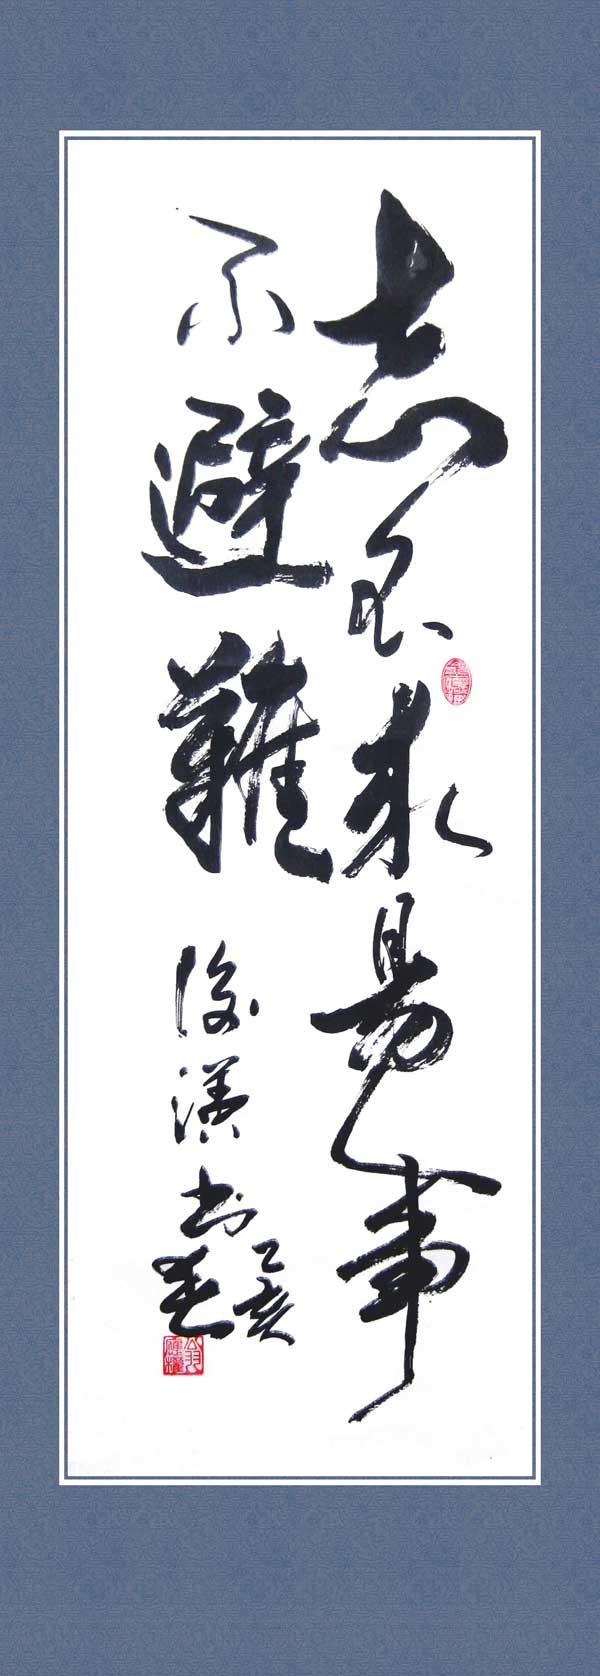 志不求易事
不避難
後漢書
乙亥
春